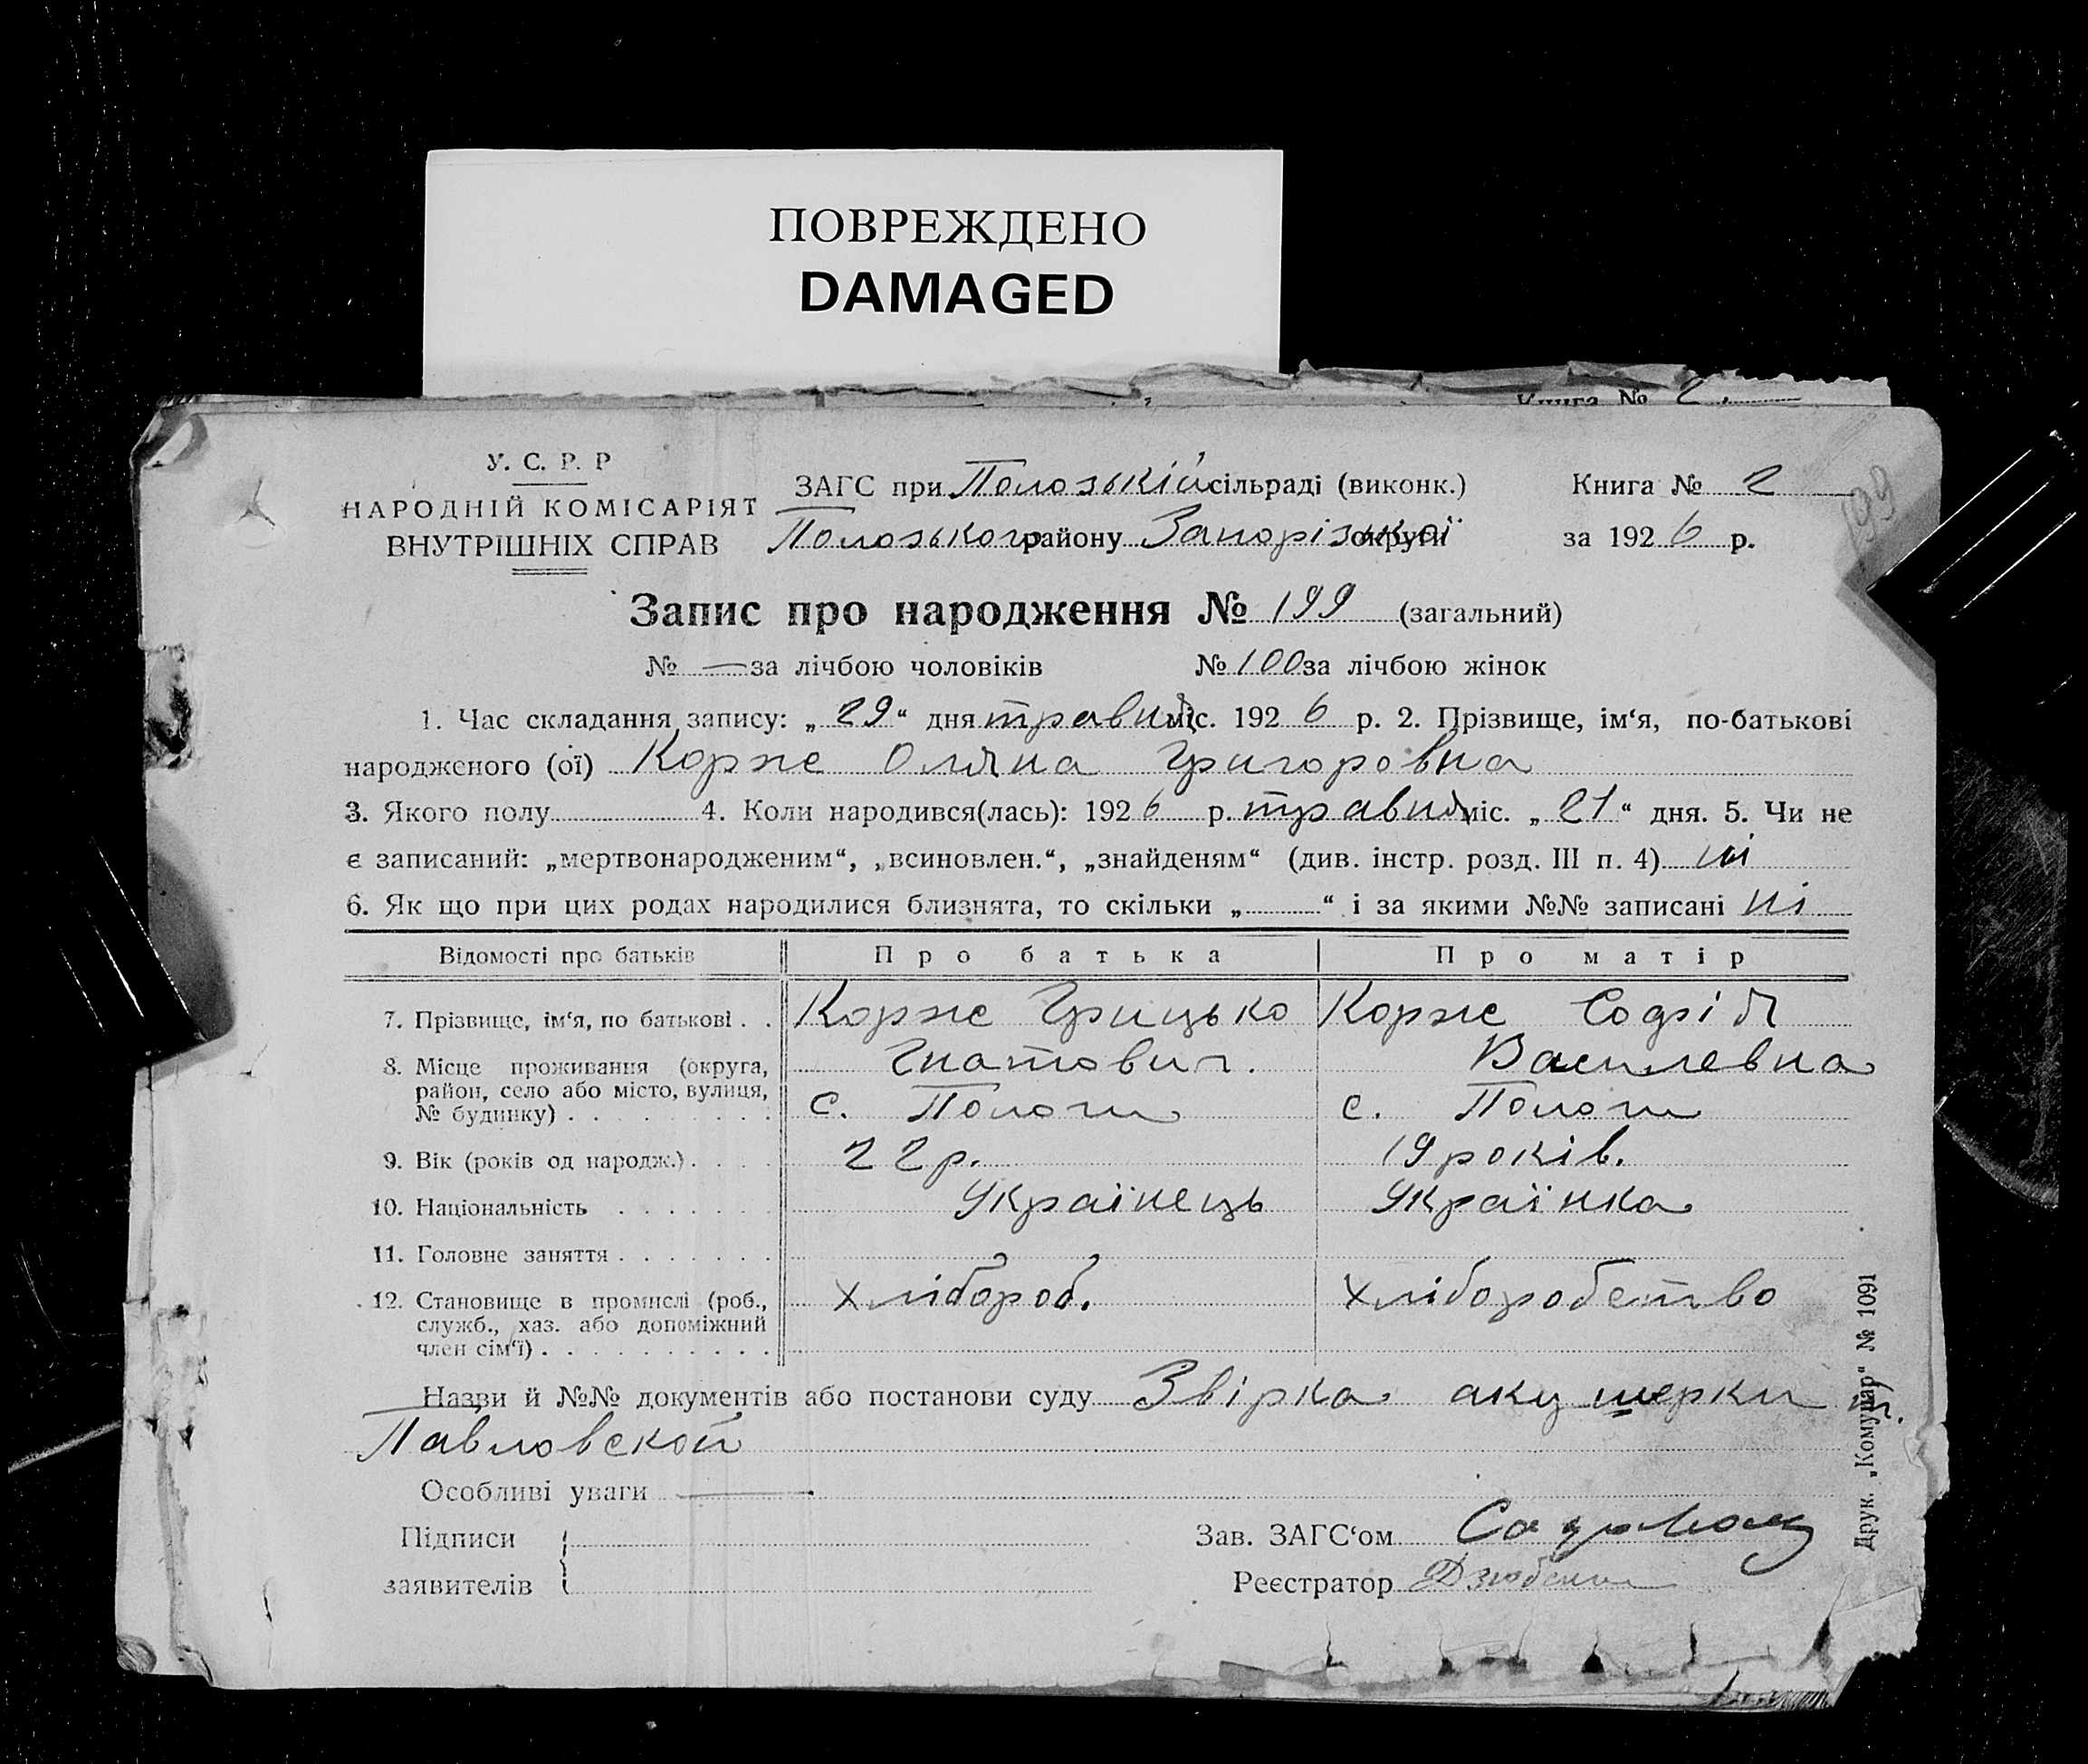 ПОВРЕЖДЕНО
DAMAGED
Книга № 2.
У. С. Р. Р
НАРОДНІЙ КОМІСАРІЯТ
ВНУТРІШНІХ СПРАВ
ЗАГС при Полозькій сільраді (виконк.)
Полозького району Запорізької округи
Книга № 2
за 1926 р.
199
Запис про народження № 199 (загальний)
№ — за лічбою чоловіків № 100 за лічбою жінок
1. Час складання запису: „29“ дня травня міс. 1926 р. 2. Прізвище, ім‘я, по-батькові
народженого (ої) Корже Оляна Григоровна
3. Якого полу 4. Коли народився(лась): 1926 р. травня міс. „21“ дня. 5. Чи не
є записаний: „мертвонародженим“, „всиновлен.“, „знайденям“ (див. інстр. розд. III п. 4) ні
6. Як що при цих родах народилися близнята, то скільки „ “ і за якими №№ записані ні
Відомості про батьків Про батька Про матір
7. Прізвище, ім‘я, по батькові . . Корже Грицько Корже Софія
Гнатович. Василевна
8. Місце проживання (округа,
район, село або місто, вулиця,
№ будинку) . . . . . . . . . с. Пологи с. Пологи
9. Вік (років од народж.) . . . . 22 р. 19 років.
10. Національність . . . . . . . Українець Українка
11. Головне заняття . . . . . . .
12. Становище в промислі (роб., хлібороб. хліборобство
служб., хаз. або допоміжний
член сім‘ї) . . . . . . . . . .
Назви й №№ документів або постанови суду Звірка акушерки
Павловской
Особливі уваги —
Підписи
заявителів
Зав. ЗАГС‘ом
Реєстратор
Друк. „Комунар“ № 1091